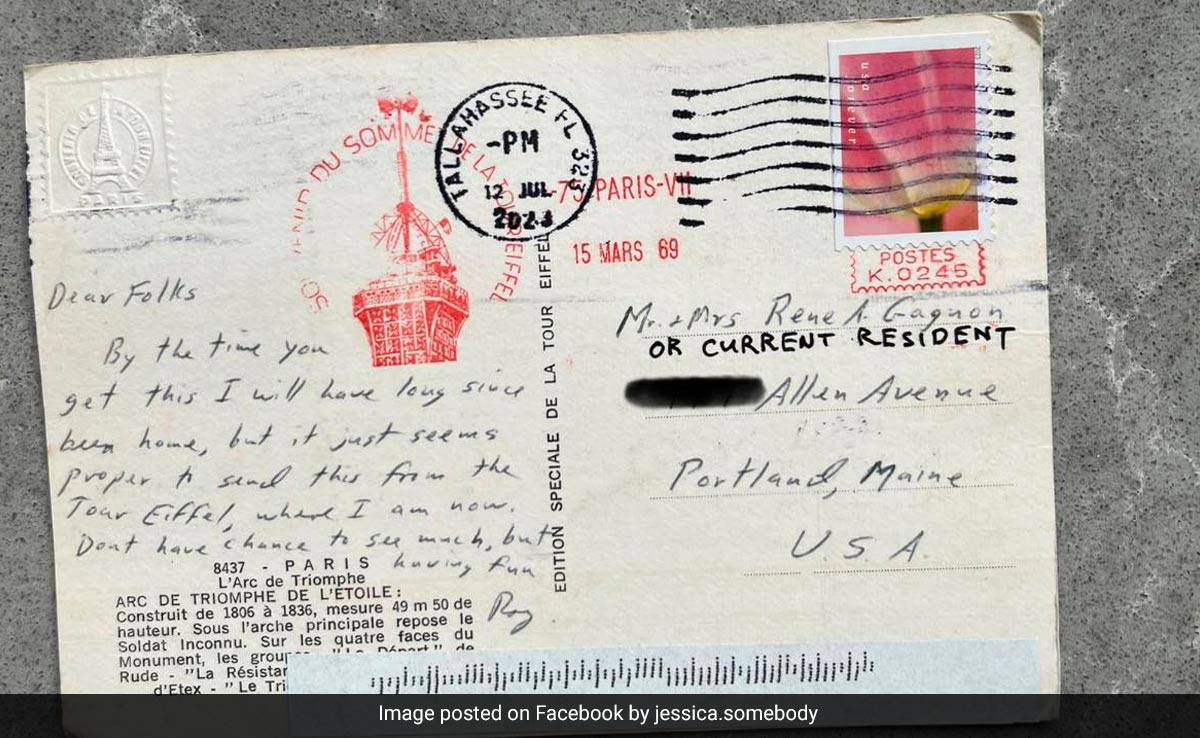 SOUVENIR DU SOMMET DE LA TOUR EIFFEL
PARIS
TALLAHASSEE FL 323
-PM
12 JUL
2023
-75 PARIS-VII
15 MARS 69
usa forever
POSTES
K.0245
Dear Folks
By the time you
get this I will have long since
been home, but it just seems
proper to send this from the
Tour Eiffel, where I am now.
Dont have chance to see much, but
having fun
Roy
EDITION SPECIALE DE LA TOUR EIFFEL
Mr. + Mrs Rene A. Gagnon
OR CURRENT RESIDENT
Allen Avenue
Portland, Maine
U.S.A.
8437 - PARIS
L'Arc de Triomphe
ARC DE TRIOMPHE DE L'ETOILE :
Construit de 1806 à 1836, mesure 49 m 50 de
hauteur. Sous l'arche principale repose le
Soldat Inconnu. Sur les quatre faces du
Monument, les "Le Départ" de
Rude - "La
d'Etex - "Le
Image posted on Facebook by jessica.somebody